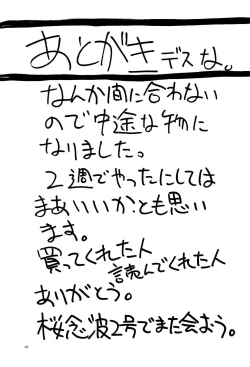 あとがきデスな。
なんか間に合わない
ので中途な物に
なりました。
2週でやったにしては
まあいいか。とも思い
ます。
買ってくれた人
読んでくれた人
ありがとう。
桜念波2号でまた会おう。